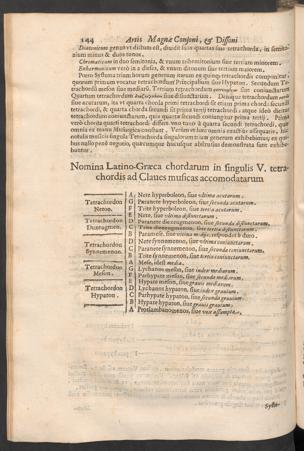 144 Artis Magnæ Consoni, & Dissoni
Diatonicum genus vt dictum est, diuidit suas quartas siue tetrachorda, in semito-
nium minus & duos tonos.
Chromaticum in duo semitonia, & vnum trihemitonium siue tertiam minorem.
Enharmonicum verò in 2 dieses, & vnum ditonum siue tertiam maiorem.
Porrò Systema trium horum generum iterum ex quinque tetrachordis componitur,
quorum primum vocatur tetrachordum Principalium siue Hypaton. Secundum Te-
trachordū meson siue mediarū. Tertium tetrachordum siue coniunctarum
Quartum tetrachordum siue disiunctarum. Denique tetrachordum
siue acutarum, ita vt quarta chorda primi tetrachordi sit etiam prima chorda secundi
tetrachordi, & quarta chorda secundi sit prima tertij tetrachordi; atque ideò dicitur
tetrachordum coniunctarum, quia quartæ secundi coniungitur prima tertij. Prima
verò chorda quarti tetrachordi differt vno tono à quarta secundi tetrachordi, quæ
omnia ex manu Musica innotescunt. Verùm vt hæc omnia exactiùs assequaris, hîc
notulis musicis singula Tetrachorda singulorum trium generum exhibebimus; ex qui-
bus nullo penè negotio, quæcunque hucusque abstrusius demonstrata sunt exhibe-
buntur.
Nomina Latino-Græca chordarum in singulis V. tetra-
chordis ad Claues musicas accomodatarum
Tetrachordon
Neton.
A, Nete hyperboleon, siue vltima acutarum.
G Paranete hyperboleon, siue secunda acutarum.
F Trite hyperboleon, siue tertia acutarum.
E Nete, siue vltima disiunctarum.
Tetrachordon
Diezeugmenon.
D Paranete diezeugmenon, siue secunda disiunctarum.
C Trite diezeugmenon, siue tertia disiunctarum.
Tetrachordon
Synnemenon.
D Nete synnemenon, siue vltima coniunctarum.
C Paranete synnemenon, siue secunda coniunctarum.
B Trite synnemenon, siue tertia coniunctarum.
A Mese, idest media.
Tetrachordon
Meson.
G Lychanos meson, siue index mediarum.
F Parhypate meson, siue secunda mediarum.
E Hypate meson, siue grauis mediarum.
Tetrachordon
Hypaton.
D Lychanos hypaton, siue index grauium.
C Parhypate hypaton, siue secunda grauium.
B Hypate hypaton, siue grauis grauium.
A Proslambanomenos, siue vox assumpta.